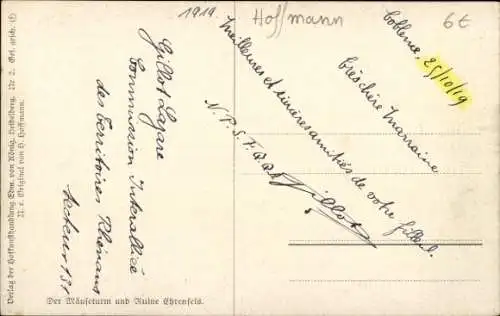 1919.
Hoffmann
6€
Coblence, 25/10/19
très chère Marraine
Meilleures et sincères amitiés de votre filleul.
N. P. S. T. Q. Q.
Gillot
Gillot Lazare
Commission Interalliée
des Territoires Rhénans
Secteur 181
Der Mäuseturm und Ruine Ehrenfels.
Verlag der Hofkunsthandlung Edm. von König, Heidelberg. Nr. 2. Ges. gesch. (E)
N. e. Original von H. Hoffmann.